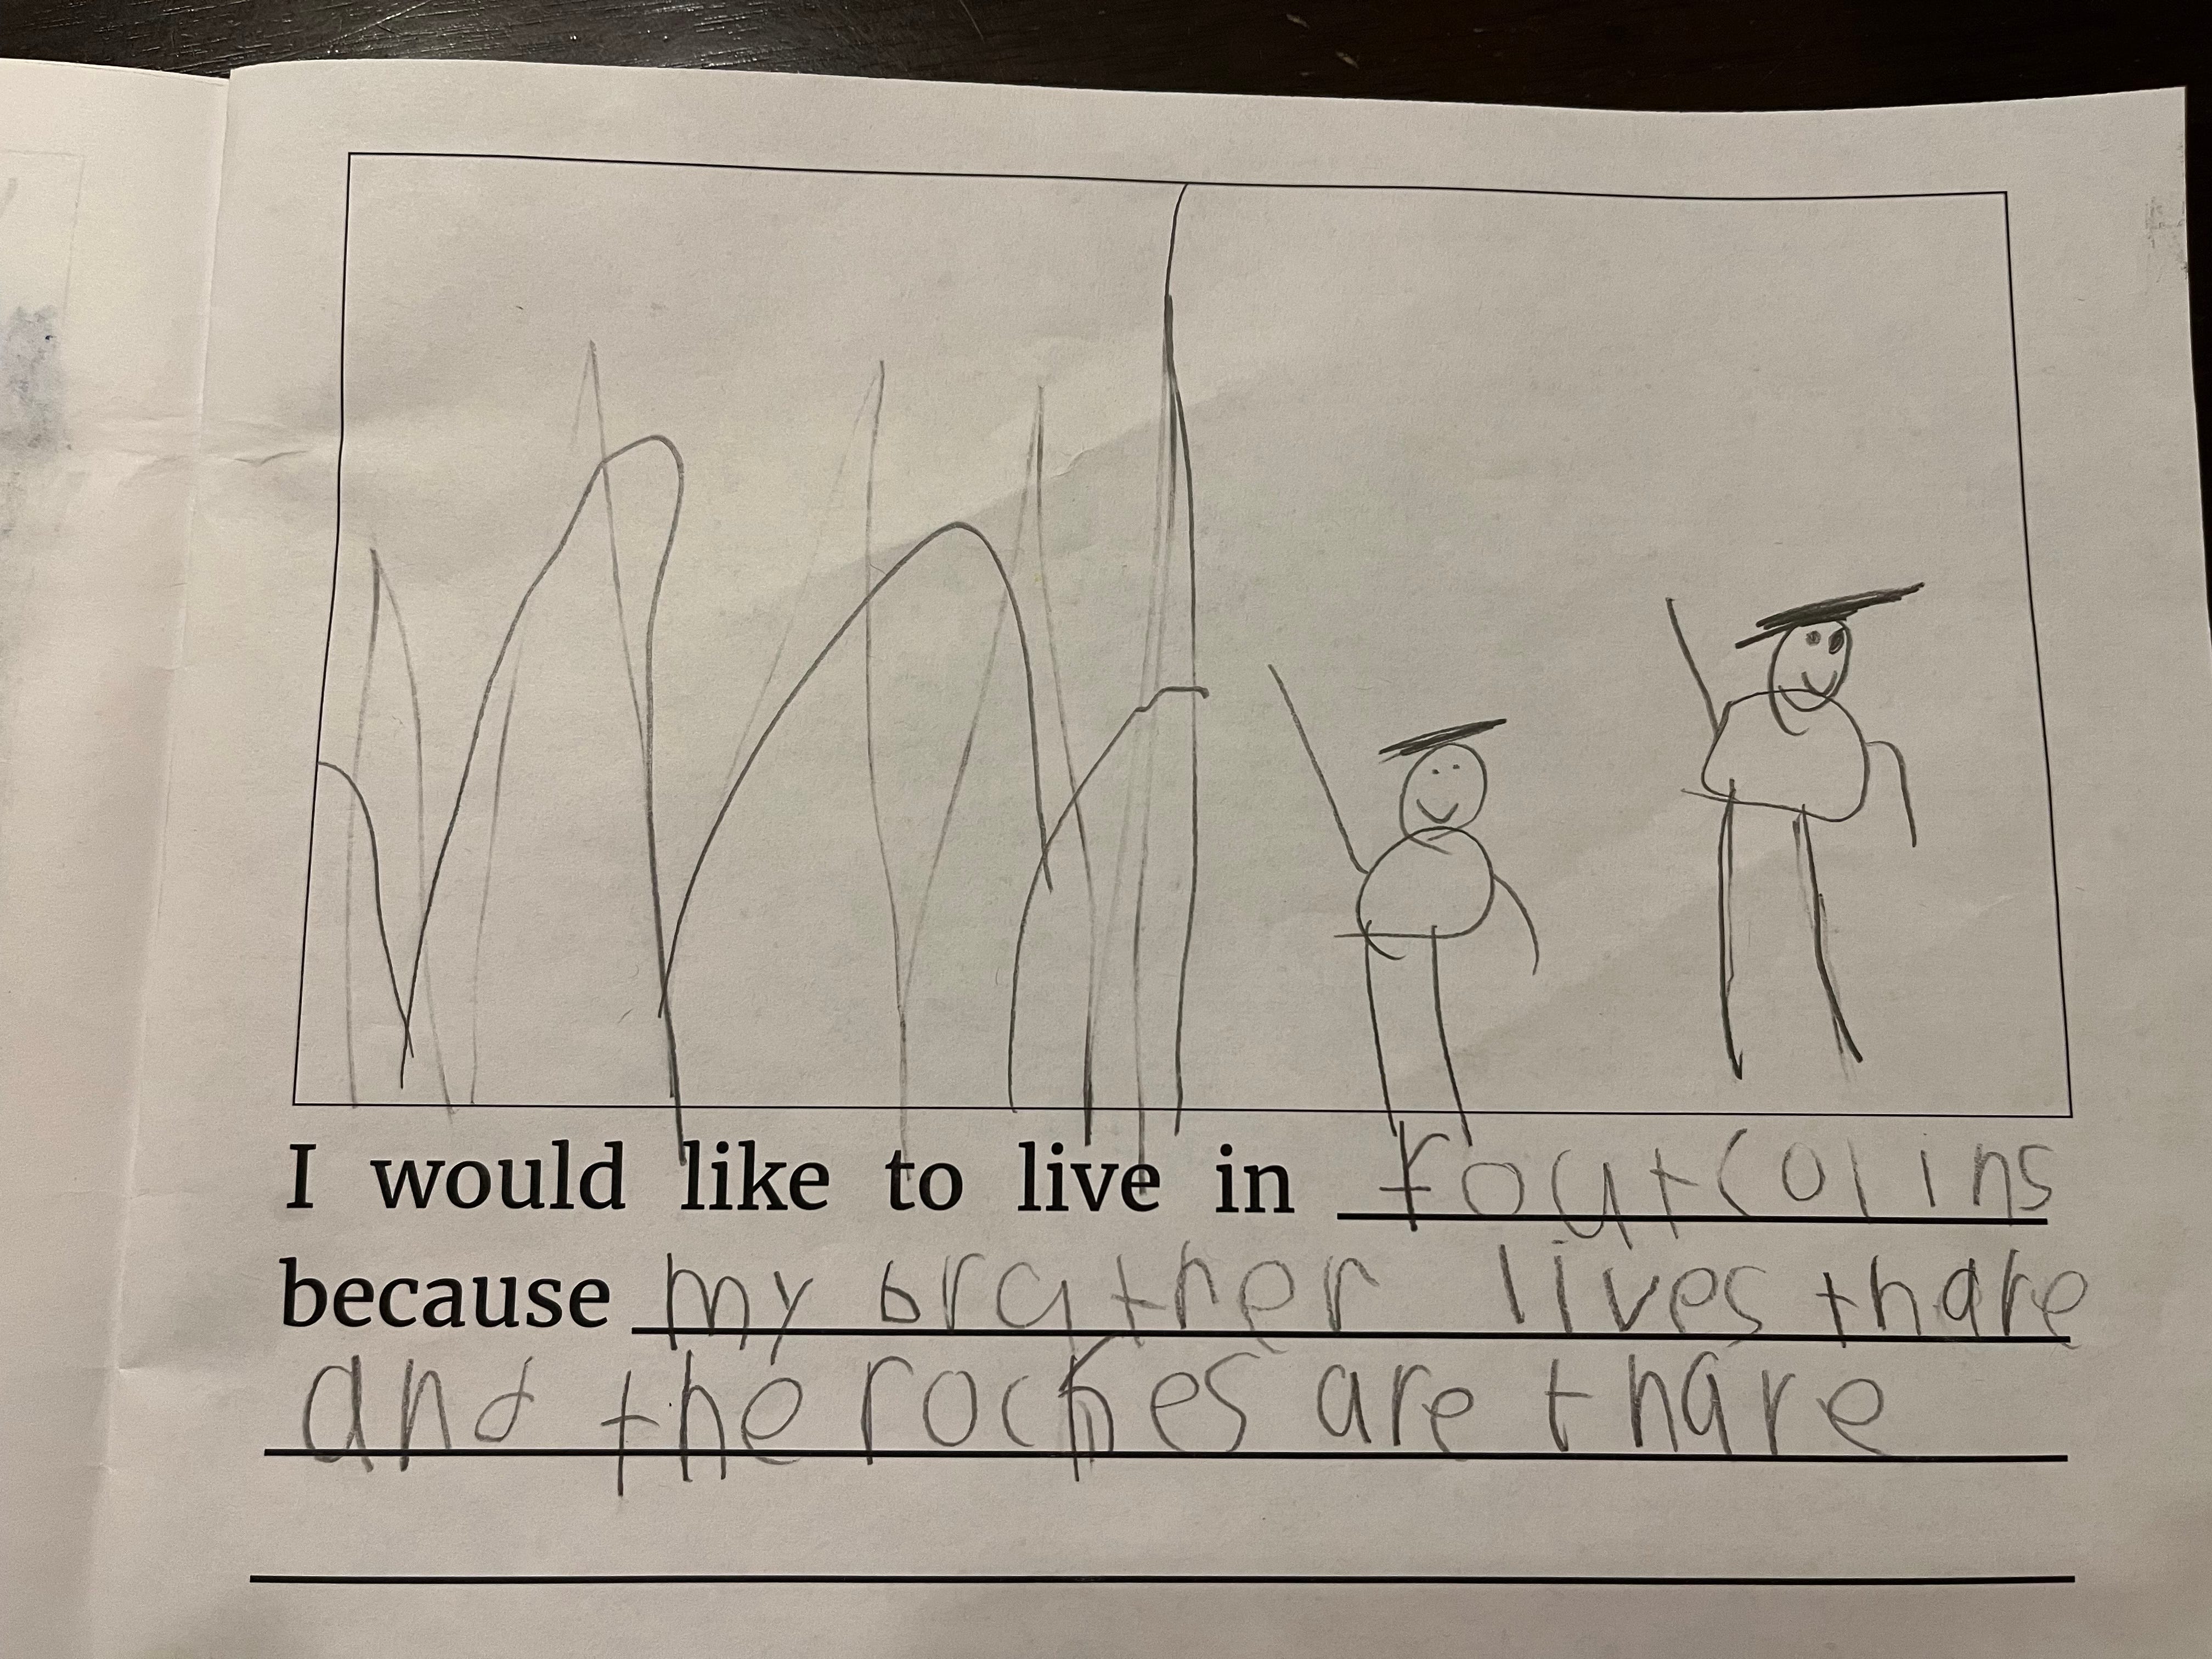 I would like to live in fout colins
because my brather lives thare
and the roches are thare